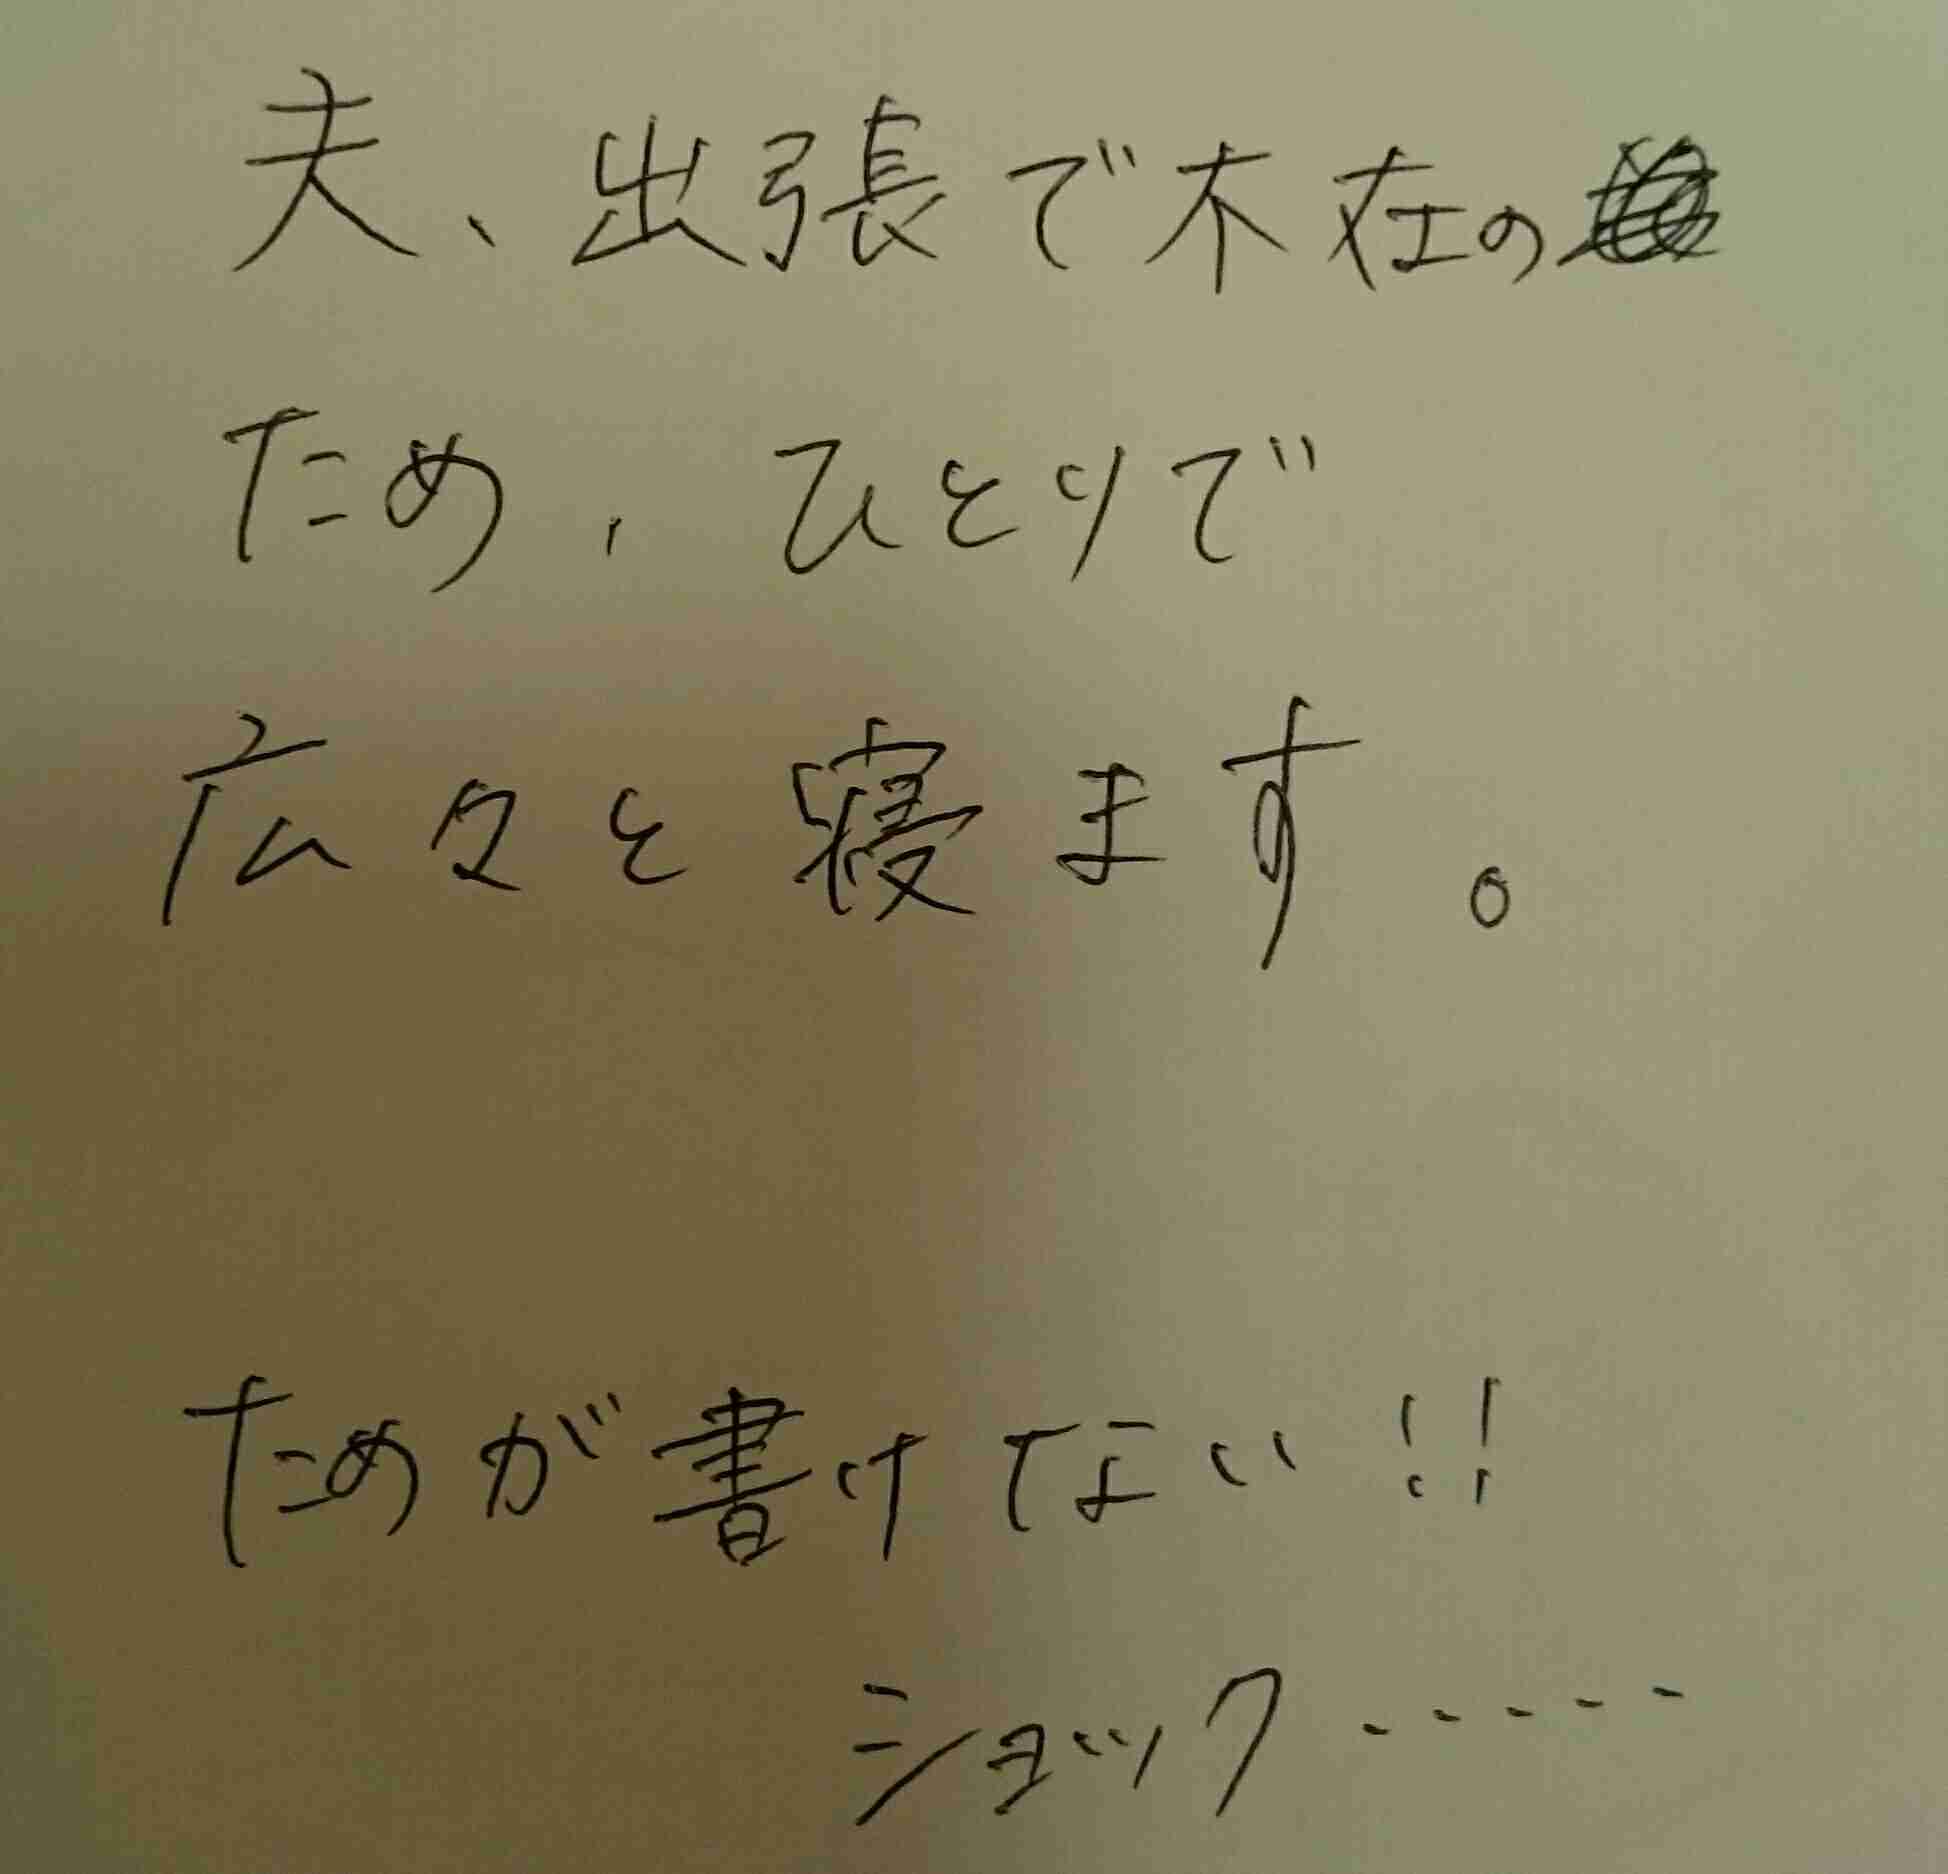 夫、出張で不在の
ため、ひとりで
広々と寝ます。
ためが書けない!!
ショック・・・・・